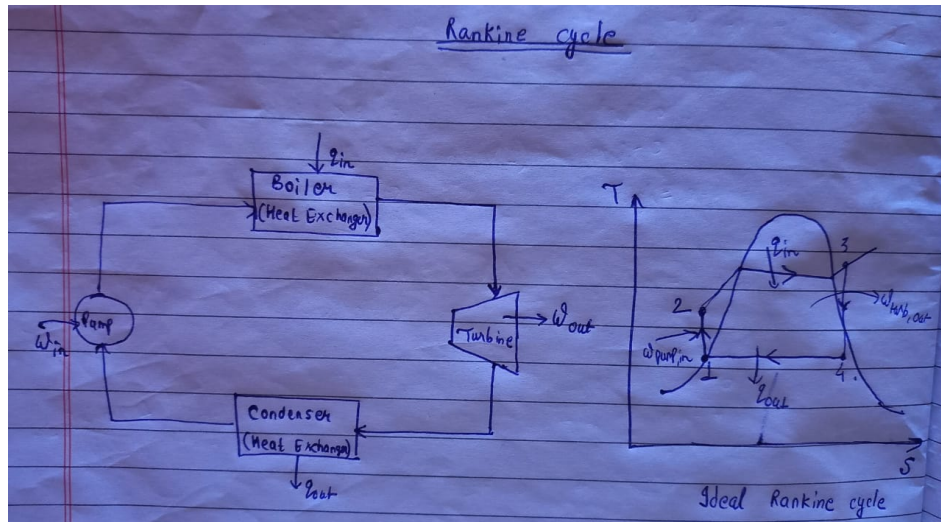 Rankine cycle
qin
Boiler
(Heat Exchanger)
Pump
ωin
Turbine
ωout
Condenser
(Heat Exchanger)
qout
T
3
qin
2
ωturb,out
ωpump,in
1
4
qout
S
Ideal Rankine cycle